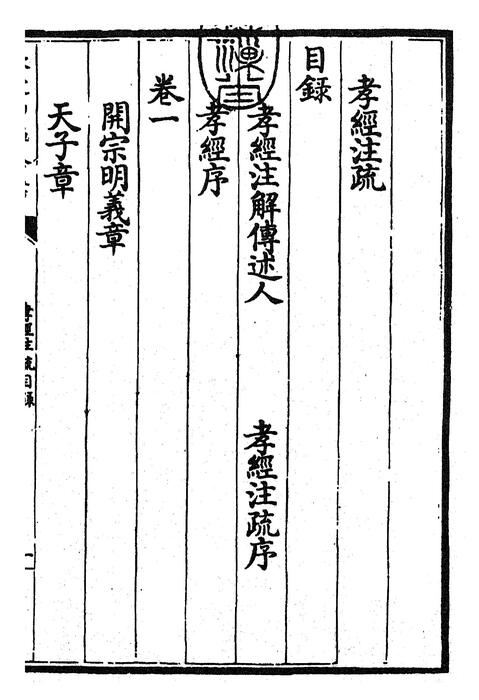 孝經注疏
目録
孝經注解傳述人 孝經注疏序
孝經序
卷一
開宗明義章
天子章
孝經注疏目録
一